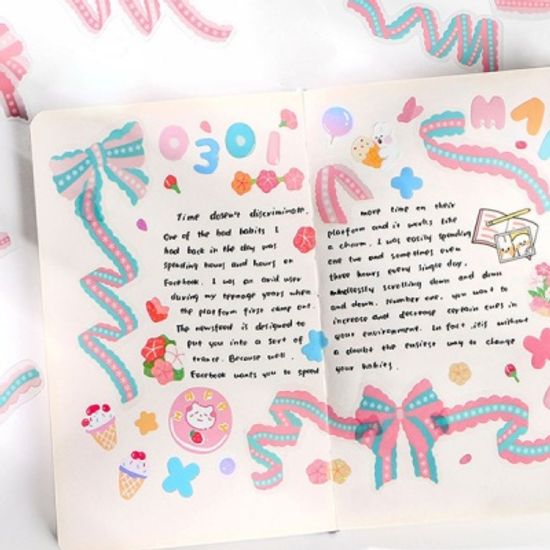 0301
Time doesn't discriminate.
One of the bad habits I
had back in the day was
spending hours and hours on
Facebook. I was an avid user
during my teenage years when
the platform first came out.
The newsfeed is designed to
put you into a sort of
trance. Because well,
Facebook wants you to spend
MA
more time on their
platform and it works like
a charm. I was easily spending
one two and sometimes even
three hours every single day,
mindlessly scrolling down and down
and down. Number one, you want to
increase and decrease certain cues in
your environment. In fact, it's without
a doubt the easiest way to change
your habits.